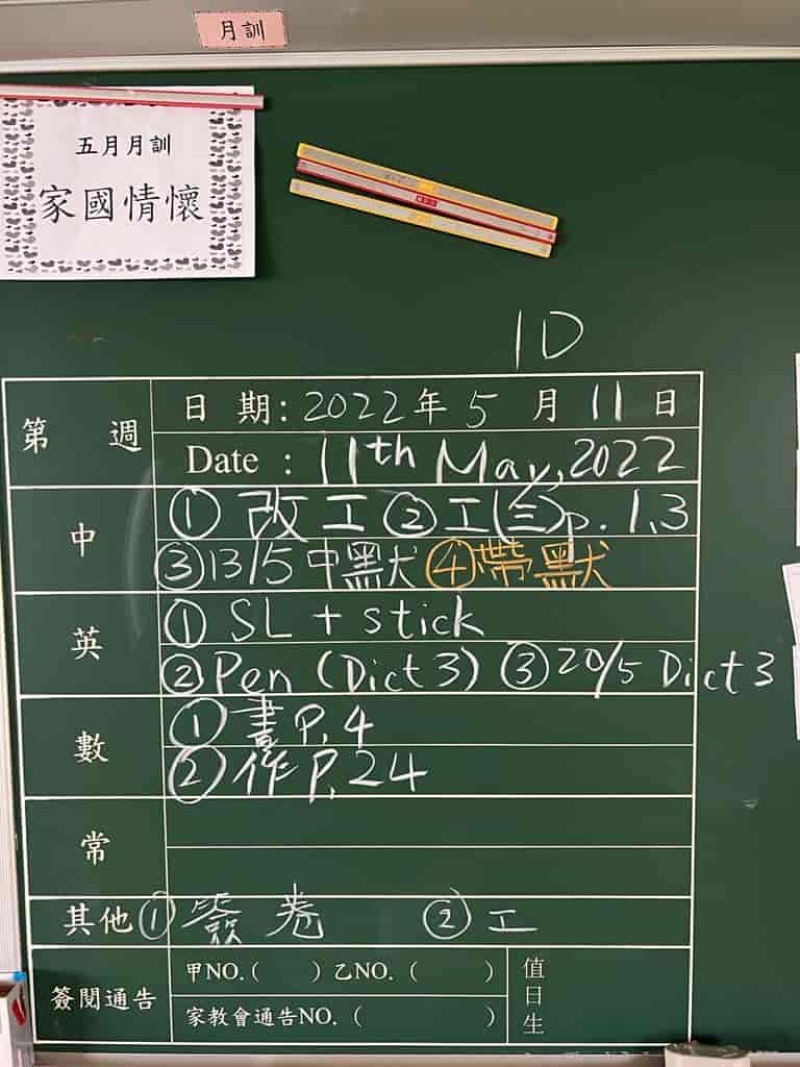 月訓
五月月訓
家國情懷
1D
第 週
日 期: 2022年 5 月 11 日
Date : 11th May, 2022
中
① 改 工 ② 工(三)p. 1,3
③ 13/5 中默 ④ 帶默
英
① SL + stick
② Pen (Dict 3) ③ 20/5 Dict 3
數
① 書 P. 4
② 作 P. 24
常
其他 ① 簽 卷 ② 工
簽閱通告
甲NO.( ) 乙NO. ( )
家教會通告NO. ( )
值日生